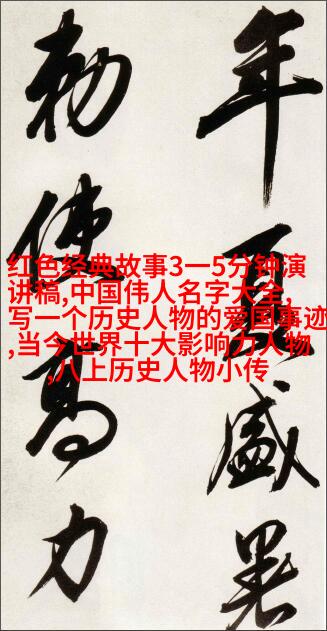 年夏盛暑
勅使高力
红色经典故事3一5分钟演
讲稿,中国伟人名字大全,
写一个历史人物的爱国事迹
,当今世界十大影响力人物
,八上历史人物小传